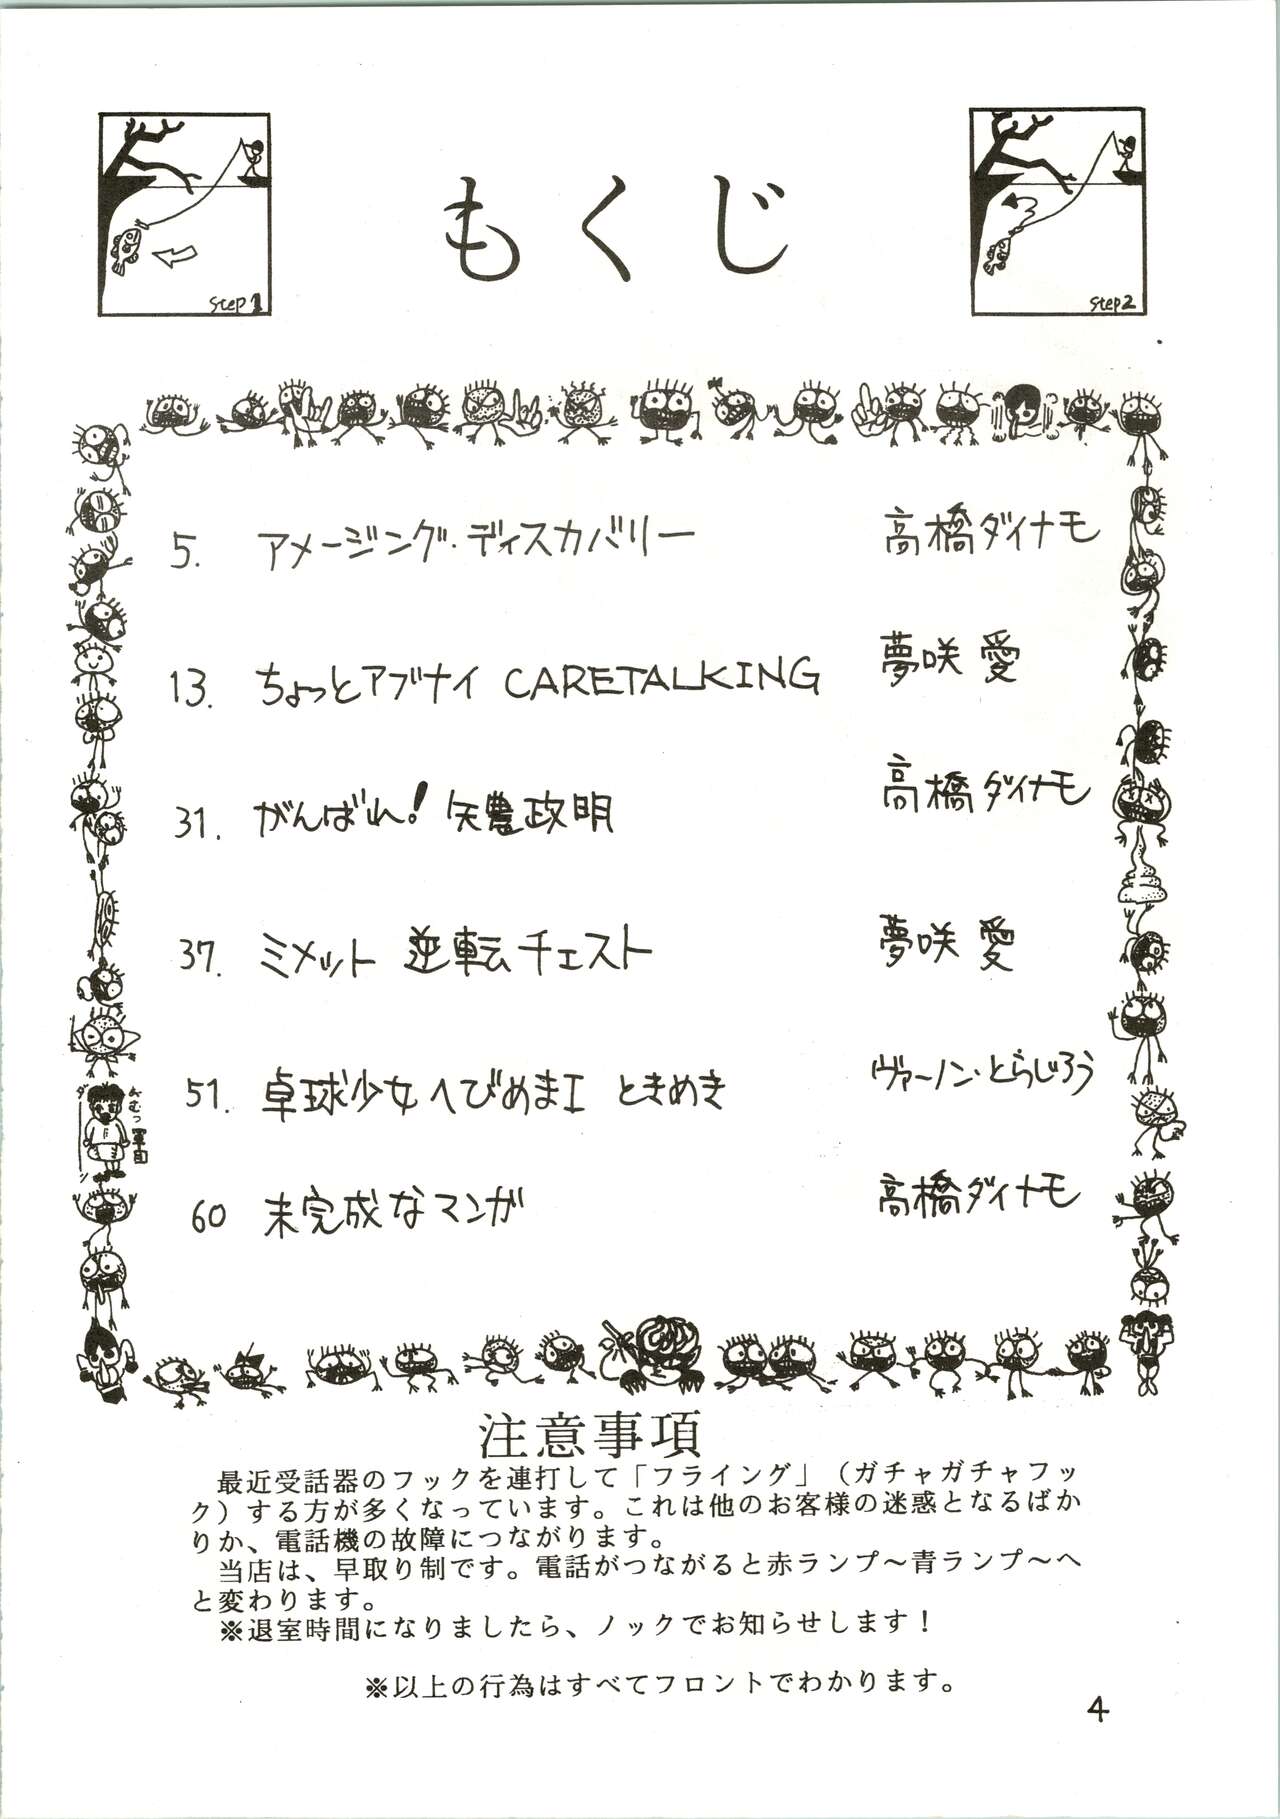 Step 1
もくじ
Step 2
5. アメージング・ディスカバリー 高橋ダイナモ
13. ちょっとアブナイ CARETALKING 夢咲 愛
31. がんばれ! 矢豊政明 高橋ダイナモ
37. ミメット 逆転チェスト 夢咲 愛
51. 卓球少女へびめまI ときめき ヴァーノン・とらじろう
60 未完成なマンガ 高橋ダイナモ
おむつ軍団
注意事項
最近受話器のフックを連打して「フライング」（ガチャガチャフッ
ク）する方が多くなっています。これは他のお客様の迷惑となるばか
りか、電話機の故障につながります。
当店は、早取り制です。電話がつながると赤ランプ〜青ランプ〜へ
と変わります。
※退室時間になりましたら、ノックでお知らせします！
※以上の行為はすべてフロントでわかります。
4